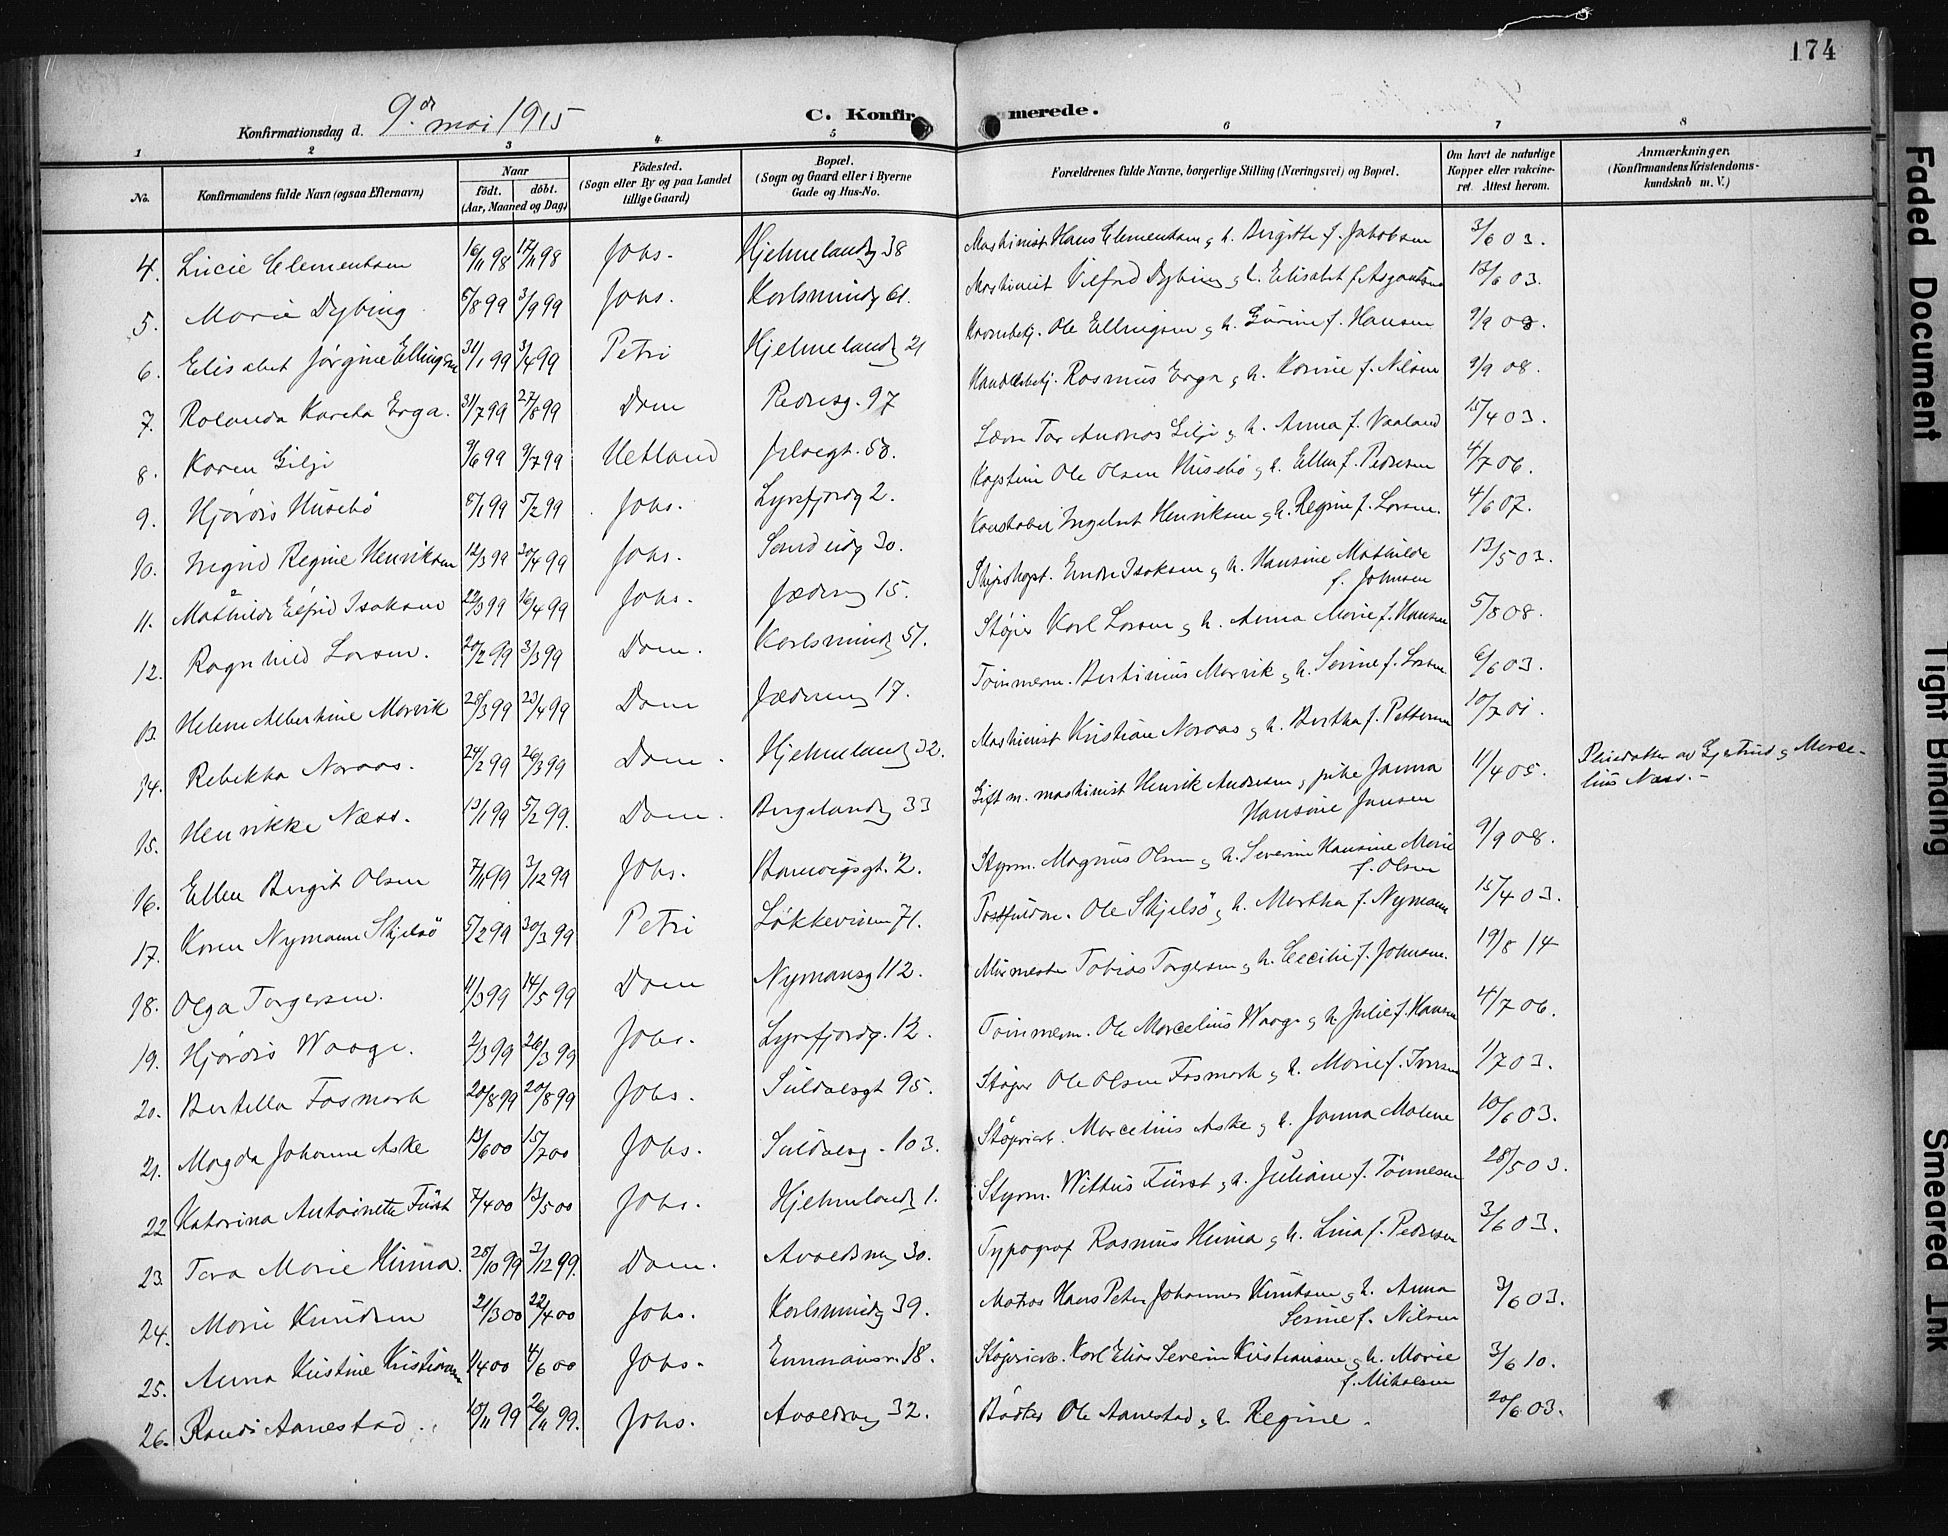 174
Konfirmationsdag d. 9de mai 1915
C. Konfirmerede.
1 2 3 4 5 6 7 8
No. Konfirmandens fulde Navn (ogsaa Efternavn) Naar født. døbt. (Aar, Maaned og Dag) Fødested. (Sogn eller By og paa Landet tillige Gaard) Bopæl. (Sogn og Gaard eller i Byerne Gade og Hus-No. Forældrenes fulde Navne, borgerlige Stilling (Næringsvei) og Bopæl. Om havt de naturlige Kopper eller vakcineret. Attest herom. Anmærkninger, (Konfirmandens Kristendomskundskab m. V.)
4. Lucie Clementsen 16/11 98 17/11 98 Johs. Hjelmelandg 38 Maskinist Hans Clementsen g h. Birgitte f. Jakobsen 3/6 03.
5. Marie Dybing 5/8 99 3/9 99 Johs. Karlsmindg 61. Maskinist Vilfred Dybing g h. Elisabet f. 13/6 03.
6. Elisabet Jørgine Ellingsen 31/1 99 3/4 99 Petri Hjelmelandg 21 Ole Ellingsen g h. Gurine f. Hansen 9/9 08.
7. Rolanda Karita Erga. 31/7 99 27/8 99 Dom Pedersg. 97 Handelsbetj. Rasmus Erga g h. Karine f. Nilsen 9/9 08.
8. Karen Gilje 9/6 99 9/7 99 Hetland 58. Tor Andreas Gilje g h. Anna f. Vaaland 15/4 03.
9. Hjørdis Husebø 8/1 99 5/2 99 Johs. Lysefjordg 2. Kaptein Ole Olsen Husebø g h. Ellen f. Pedersen 4/7 06.
10. Ingrid Regine Henriksen 12/3 99 30/4 99 Johs. Sandeidg 30. Konstabel Ingebret Henriksen g h. Regine f. Larsen. 4/6 07.
11. Mathilde Elfrid Isaksen 22/3 99 16/4 99 Johs. Jæderveg 15. Skibskapt. Endre Isaksen g h. Hansine Mathilde f. Johnsen 13/5 03.
12. Ragnhild Larsen. 20/2 99 3/3 99 Dom. Karlsmindg 51. Støper Karl Larsen g h. Anna Marie f. Hansen 5/8 08.
13. Helene Albertine Marvik 28/3 99 23/4 99 Dom Jæderveg 17. Tømmerm. Bertinius Marvik g h. Serine f. Larsen 6/6 03.
14. Rebekka Noraas. 24/2 99 26/3 99 Dom. Hjelmelandg 32. Maskinist Kristian Noraas g h. Bertha f. Pettersen 10/7 01.
15. Henrikke Næss. 13/1 99 5/2 99. Dom. Bergelandg 33 Gift m. maskinist Henrik Andersen g pike Janna Hansine Jansen 11/4 05. Pleiedatter av Gjertrud g Marcelius Næss. -
16. Ellen Birgit Olsen 7/11 99 3/12 99 Johs. Banevigsgt. 2. Styrm. Magnus Olsen g h. Severine Hansine Marie f. Olsen 9/9 08.
17. Karen Nymann Skjelsø 5/2 99 30/3 99 Petri Løkkeveien 71. Ole Skjelsø g h. Martha f. Nymann 15/4 03.
18. Olga Torgersen. 11/3 99 14/5 99 Dom Nymansg 112. Murmester Tobias Torgersen g h. Cecilie f. Johnsen. 19/8 14
19. Hjørdis Waage. 2/3 99 26/3 99 Johs. Lysefjordg. 12. Tømmerm. Ole Marcelius Waage g h. Julie f. Hansen 4/7 06.
20. Bertella Fosmark 20/8 99 20/8 99 Johs. Suldalsgt 95. Støper Ole Olsen Fosmark g h. Marie f. Iversen 1/7 03.
21. Magda Johanne Aske 13/6 00 15/7 00 Johs. Suldalsg. 103. Støperiarb. Marcelius Aske g h. Janna Malene 10/6 03.
22 Katarina Antoinette Fürst 7/4 00 13/5 00 Johs. Hjelmelandg 1. Styrm. Wittus Fürst g h. Juliane f. Tønnesen 28/5 03.
23. Tora Marie Hinna. 28/10 99 3/12 99. Dom. Avaldsnesg 30. Typograf Rasmus Hinna g h. Lina f. Pedersen 3/6 03.
24. Marie Knudsen 21/3 00 22/4 00 Johs. Karlsmindg 39. Matros Hans Peter Johannes Knutsen g h. Anna Serine f. Nilsen 3/6 03.
25. Anna Kristine Kristiansen 1/4 00 4/6 00 Johs. Emmausv. 18. Støperiarb. Karl Elias Severin Kristiansen g h. Marie f. Mikalsen 3/6 10.
26. Randi Aanestad. 10/11 99 26/11 99. Johs. Avaldsnesg 32. Bødker Ole Aanestad g h. Regine. 20/6 03.
Faded Document
Tight Binding
Smeared Ink